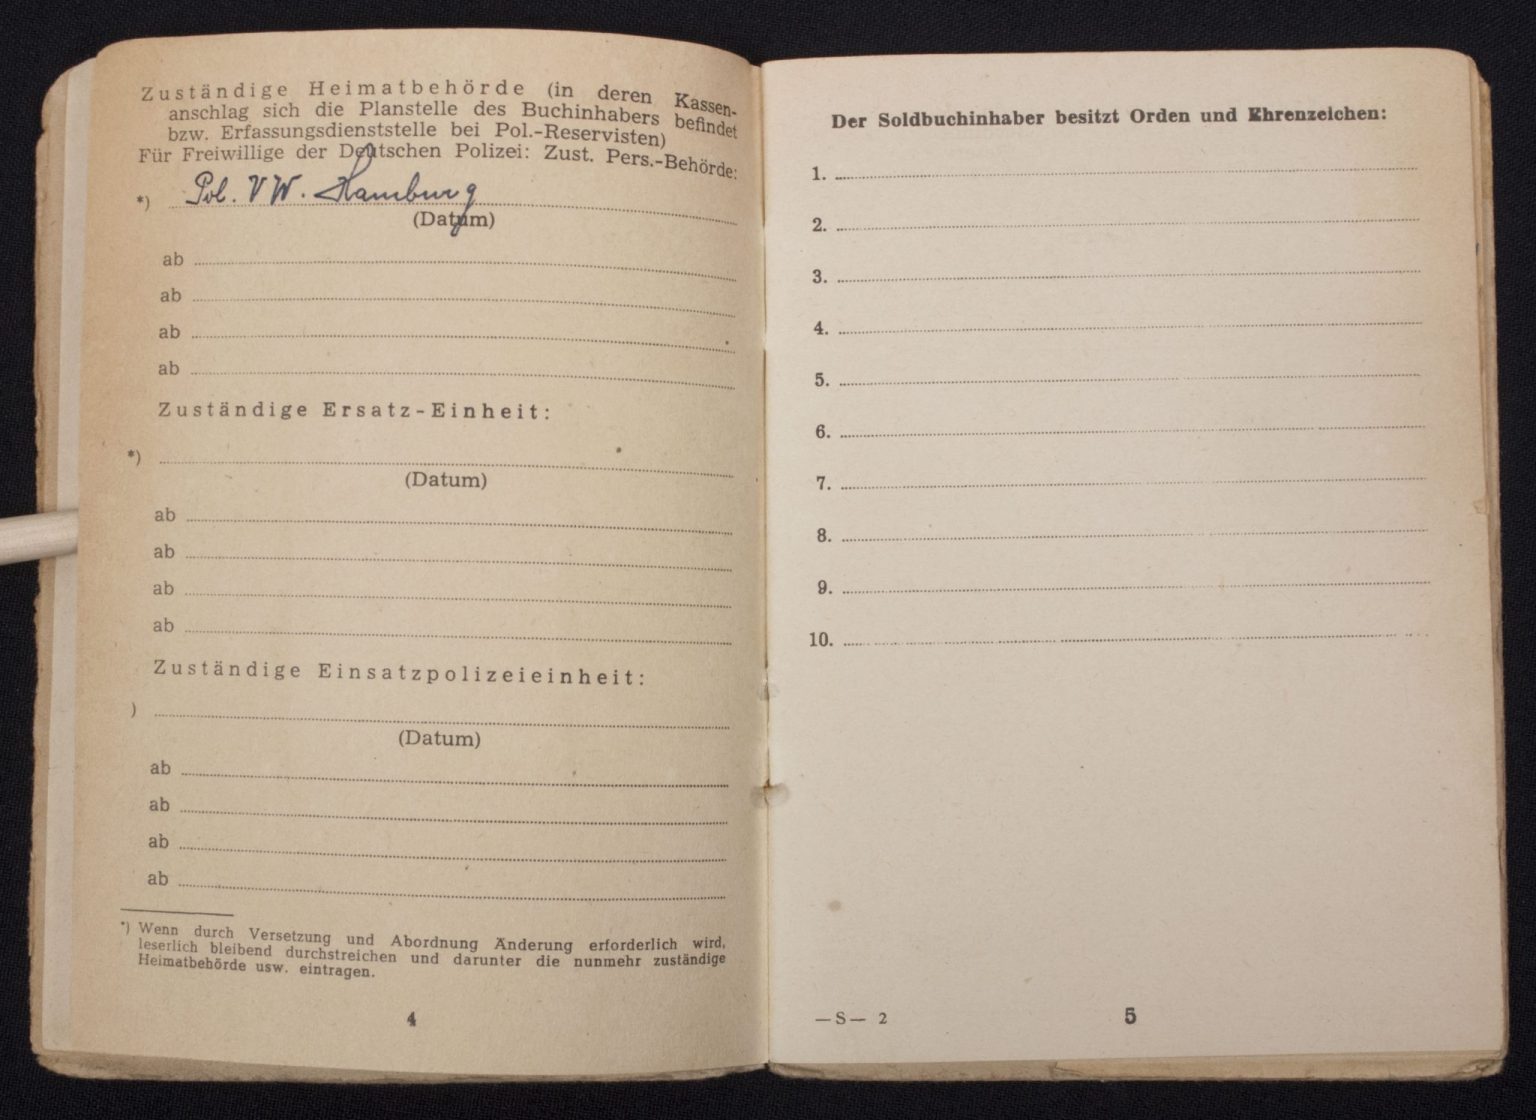 Zuständige Heimatbehörde (in deren Kassen-
anschlag sich die Planstelle des Buchinhabers befindet
bzw. Erfassungsdienststelle bei Pol.-Reservisten)
Für Freiwillige der Deutschen Polizei: Zust. Pers.-Behörde:
*) Pol. V W. Hamburg
(Datum)
ab
ab
ab
ab
Zuständige Ersatz-Einheit:
*)
(Datum)
ab
ab
ab
ab
Zuständige Einsatzpolizeieinheit:
)
(Datum)
ab
ab
ab
ab
*) Wenn durch Versetzung und Abordnung Änderung erforderlich wird,
leserlich bleibend durchstreichen und darunter die nunmehr zuständige
Heimatbehörde usw. eintragen.
4
Der Soldbuchinhaber besitzt Orden und Ehrenzeichen:
1.
2.
3.
4.
5.
6.
7.
8.
9.
10.
—S— 2
5